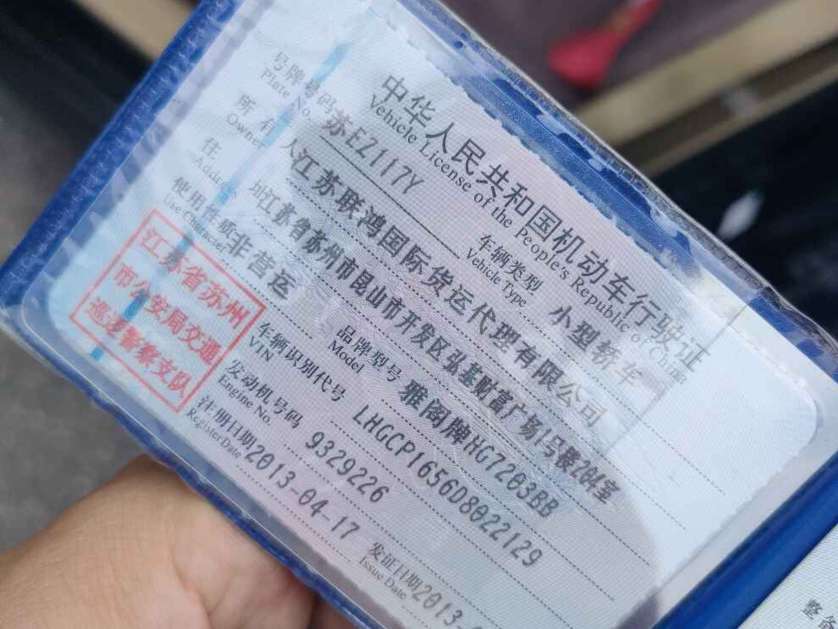 中华人民共和国机动车行驶证
Vehicle License of the People's Republic of China
号牌号码 苏EZ117Y 车辆类型 小型轿车
Plate No. Vehicle Type
所有人 江苏联鸿国际货运代理有限公司
Owner
住址 江苏省苏州市昆山市开发区弘基财富广场1号楼204室
Address
使用性质 非营运 品牌型号 雅阁牌HG7203BB
Use Character Model
江苏省苏州
市公安局交通
巡逻警察支队
车辆识别代号 LHGCP1656D8022129
VIN
发动机号码 9329226
Engine No.
注册日期 2013-04-17 发证日期 2013-
Register Date Issue Date